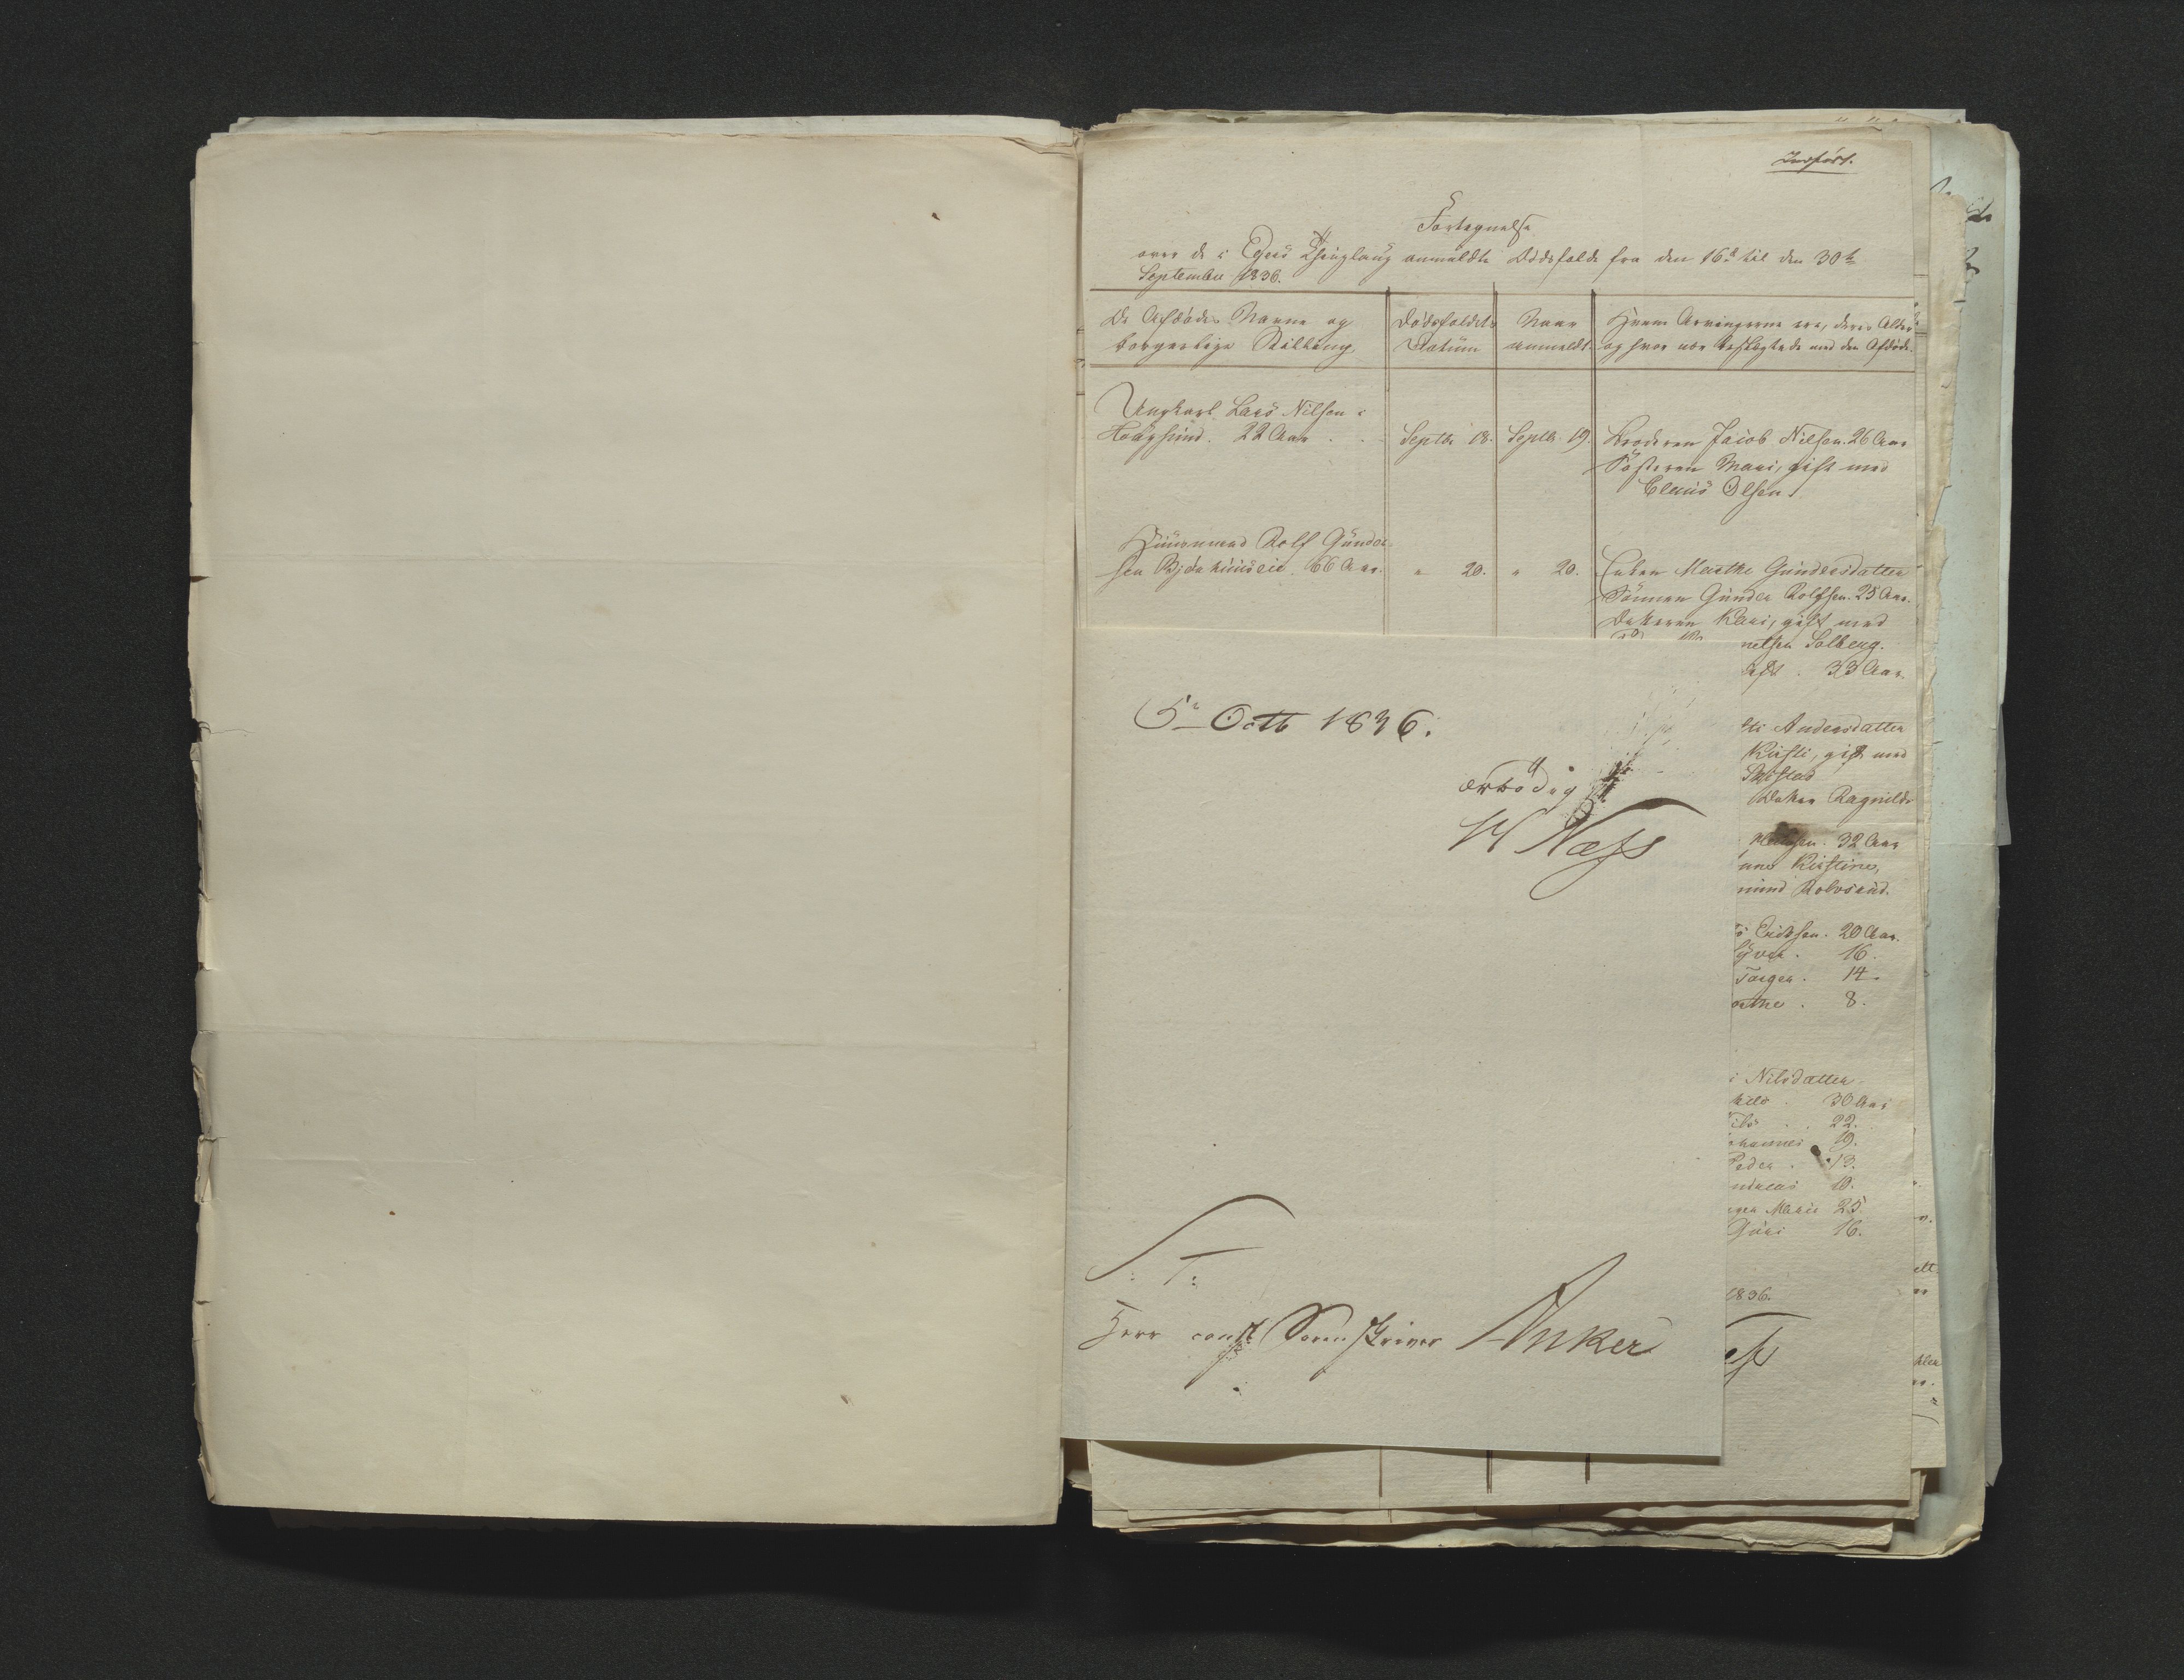 Indført.
Fortegnelse
over de i Egers Thinglaug anmeldte Dödsfald fra den 16de til den 30te
September 1836.
De Afdödes Navne og
borgerlige Stilling
Dödsfaldets
Datum
Naar
anmeldt.
Hvem Arvingerne ere, deres Alder
og hvor nær beslægtede med den Afdöde.
Ungkarl Lars Nilsen i
Hougsund. 22 Aar
Septbr 18.
Septbr 19.
Broderen Jacob Nilsen. 26 Aar
Søsteren Mari, gift med
Claus Olsen.
Huusmand Rolf Gunder-
sen 66 Aar.
" 20.
" 20.
Enken Marthe Gundersdatter
Sönnen Gunder Rolfsen. 25 Aar.
Datteren Kari, gift med
nelsen Solberg.
33 Aar.
sti Andersdatter
Kirsti, gift med
Datter Ragnild
Madsen. 32 Aar
une Kirstine,
mund Rolvsrud.
s Eriksen. 20 Aar.
Syver. 16.
Torger. 14.
arthe. 8.
i Nilsdatter
30 Aar
Nils 22.
ohannes 19.
Peder. 13.
ndreas 10.
nger Marie 25.
Guri 16.
1836.
ess
5te Octb 1836.
ærbödigst
Næss
S: T:
Herr const: Sorenskriver Anker